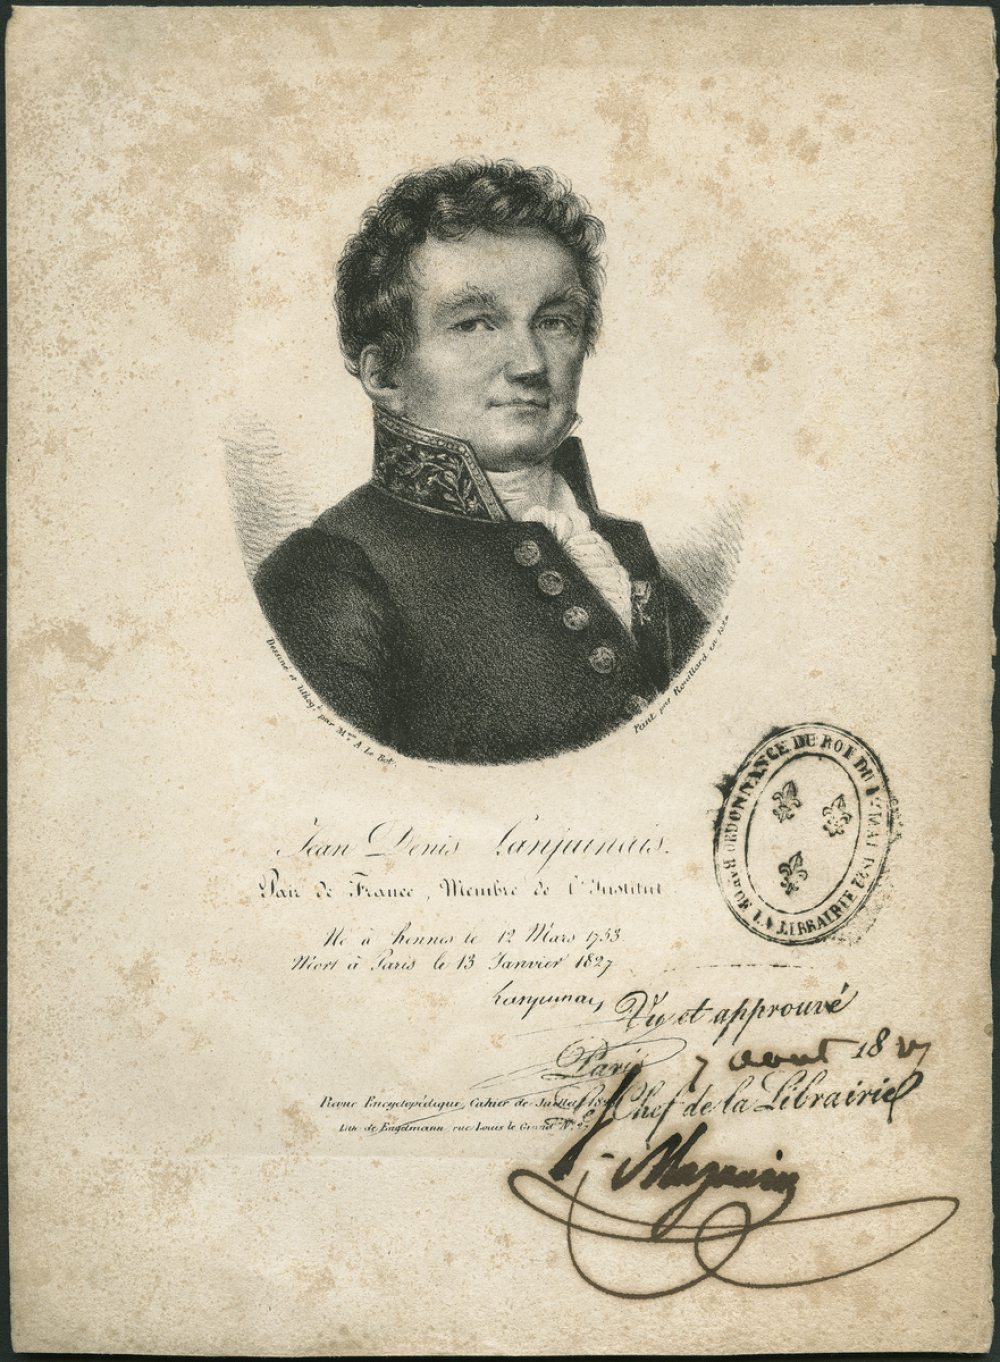 Dessiné et lithog. par Mme A. Le Bot.
Peint par Rouillard en
Jean Denis Lanjuinais.
Pair de France, Membre de l'Institut.
Né à Rennes le 12 Mars 1753
Mort à Paris le 13 Janvier 1827
Lanjuinais
BAU DE LA LIBRAIRIE ORDONNANCE DU ROI DU 1ER MAI 1822
Vu et approuvé
Paris 7 aout 1827
Chef de la Librairie
Revue Encyclopédique, Cahier de Juillet
Lith. de Engelmann, rue Louis le Grand N°